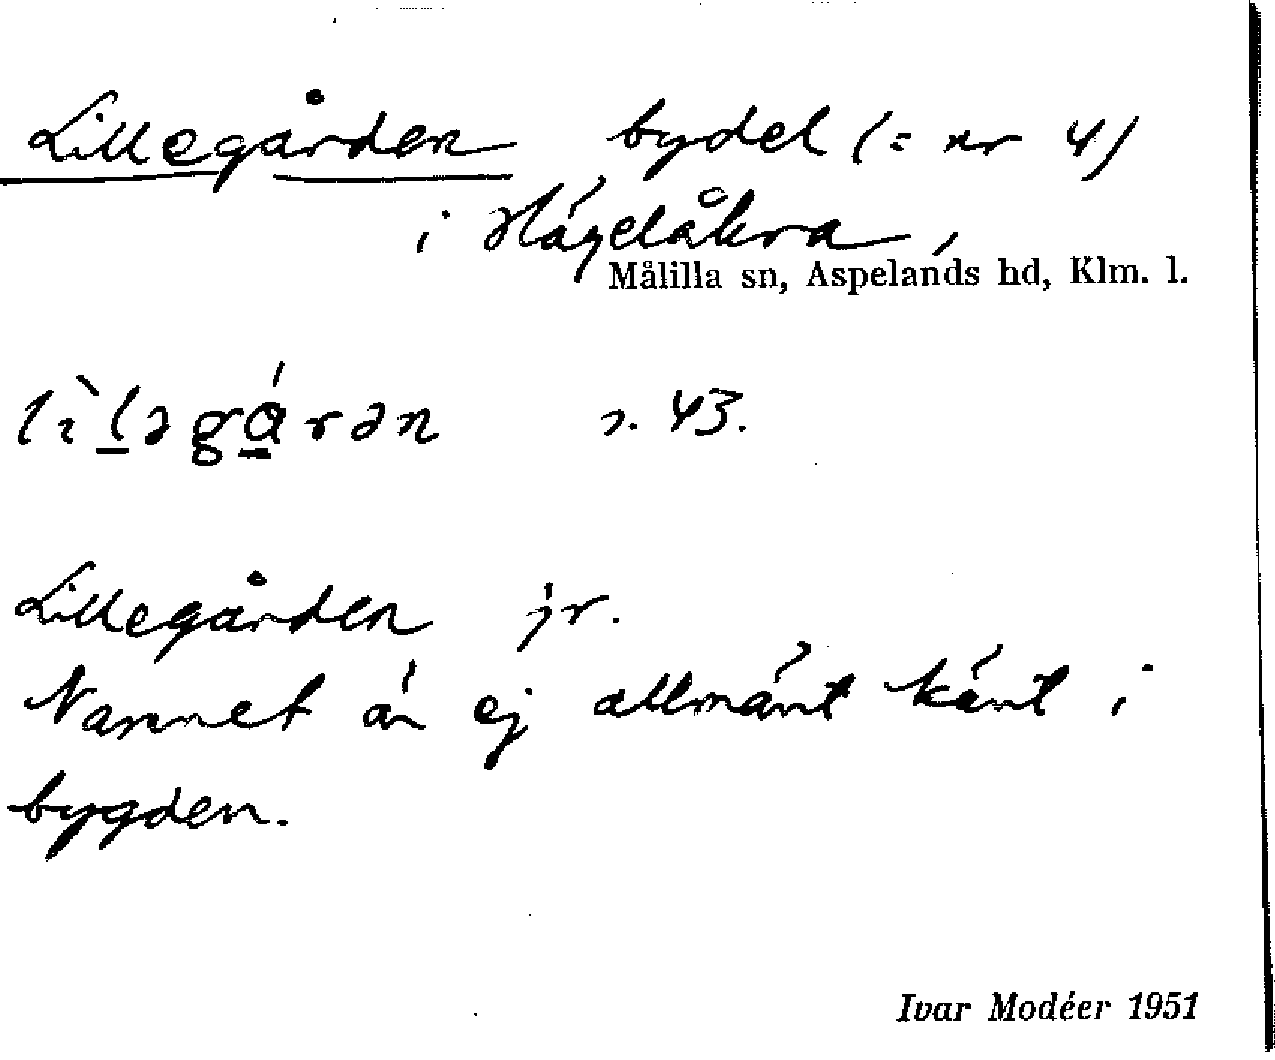 Lillegården bydel (= nr 4)
i Hägelåkra,
Målilla sn, Aspelands hd, Klm. l.
lìləgárən s. 43.
Lillegården jr.
Namnet är ej allmänt känt i
bygden.
Ivar Modéer 1951